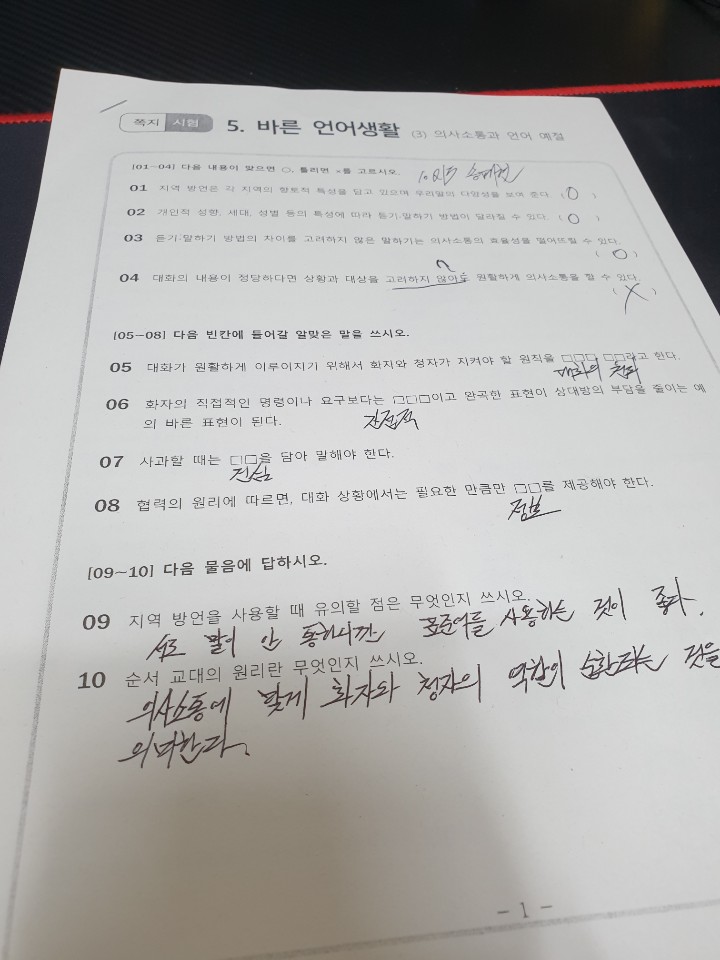 쪽지 시험 5. 바른 언어생활 (3) 의사소통과 언어 예절
[01~04] 다음 내용이 맞으면 ○, 틀리면 ×를 고르시오.
01 지역 방언은 각 지역의 향토적 특성을 담고 있으며 우리말의 다양성을 보여 준다. ( O )
02 개인적 성향, 세대, 성별 등의 특성에 따라 듣기·말하기 방법이 달라질 수 있다. ( O )
03 듣기·말하기 방법의 차이를 고려하지 않은 말하기는 의사소통의 효율성을 떨어뜨릴 수 있다.
( O )
04 대화의 내용이 정당하다면 상황과 대상을 고려하지 않아도 원활하게 의사소통을 할 수 있다.
( X )
[05~08] 다음 빈칸에 들어갈 알맞은 말을 쓰시오.
05 대화가 원활하게 이루어지기 위해서 화자와 청자가 지켜야 할 원칙을 □□□ □□라고 한다.
대화의 원리
06 화자의 직접적인 명령이나 요구보다는 □□□이고 완곡한 표현이 상대방의 부담을 줄이는 예
의 바른 표현이 된다.
간접적
07 사과할 때는 □□을 담아 말해야 한다.
진심
08 협력의 원리에 따르면, 대화 상황에서는 필요한 만큼만 □□를 제공해야 한다.
정보
[09~10] 다음 물음에 답하시오.
09 지역 방언을 사용할 때 유의할 점은 무엇인지 쓰시오.
서로 말이 안 통하니깐 표준어를 사용하는 것이 좋다.
10 순서 교대의 원리란 무엇인지 쓰시오.
의사소통에 맞게 화자와 청자의 역할이 순환되는 것을
의미한다.
- 1 -